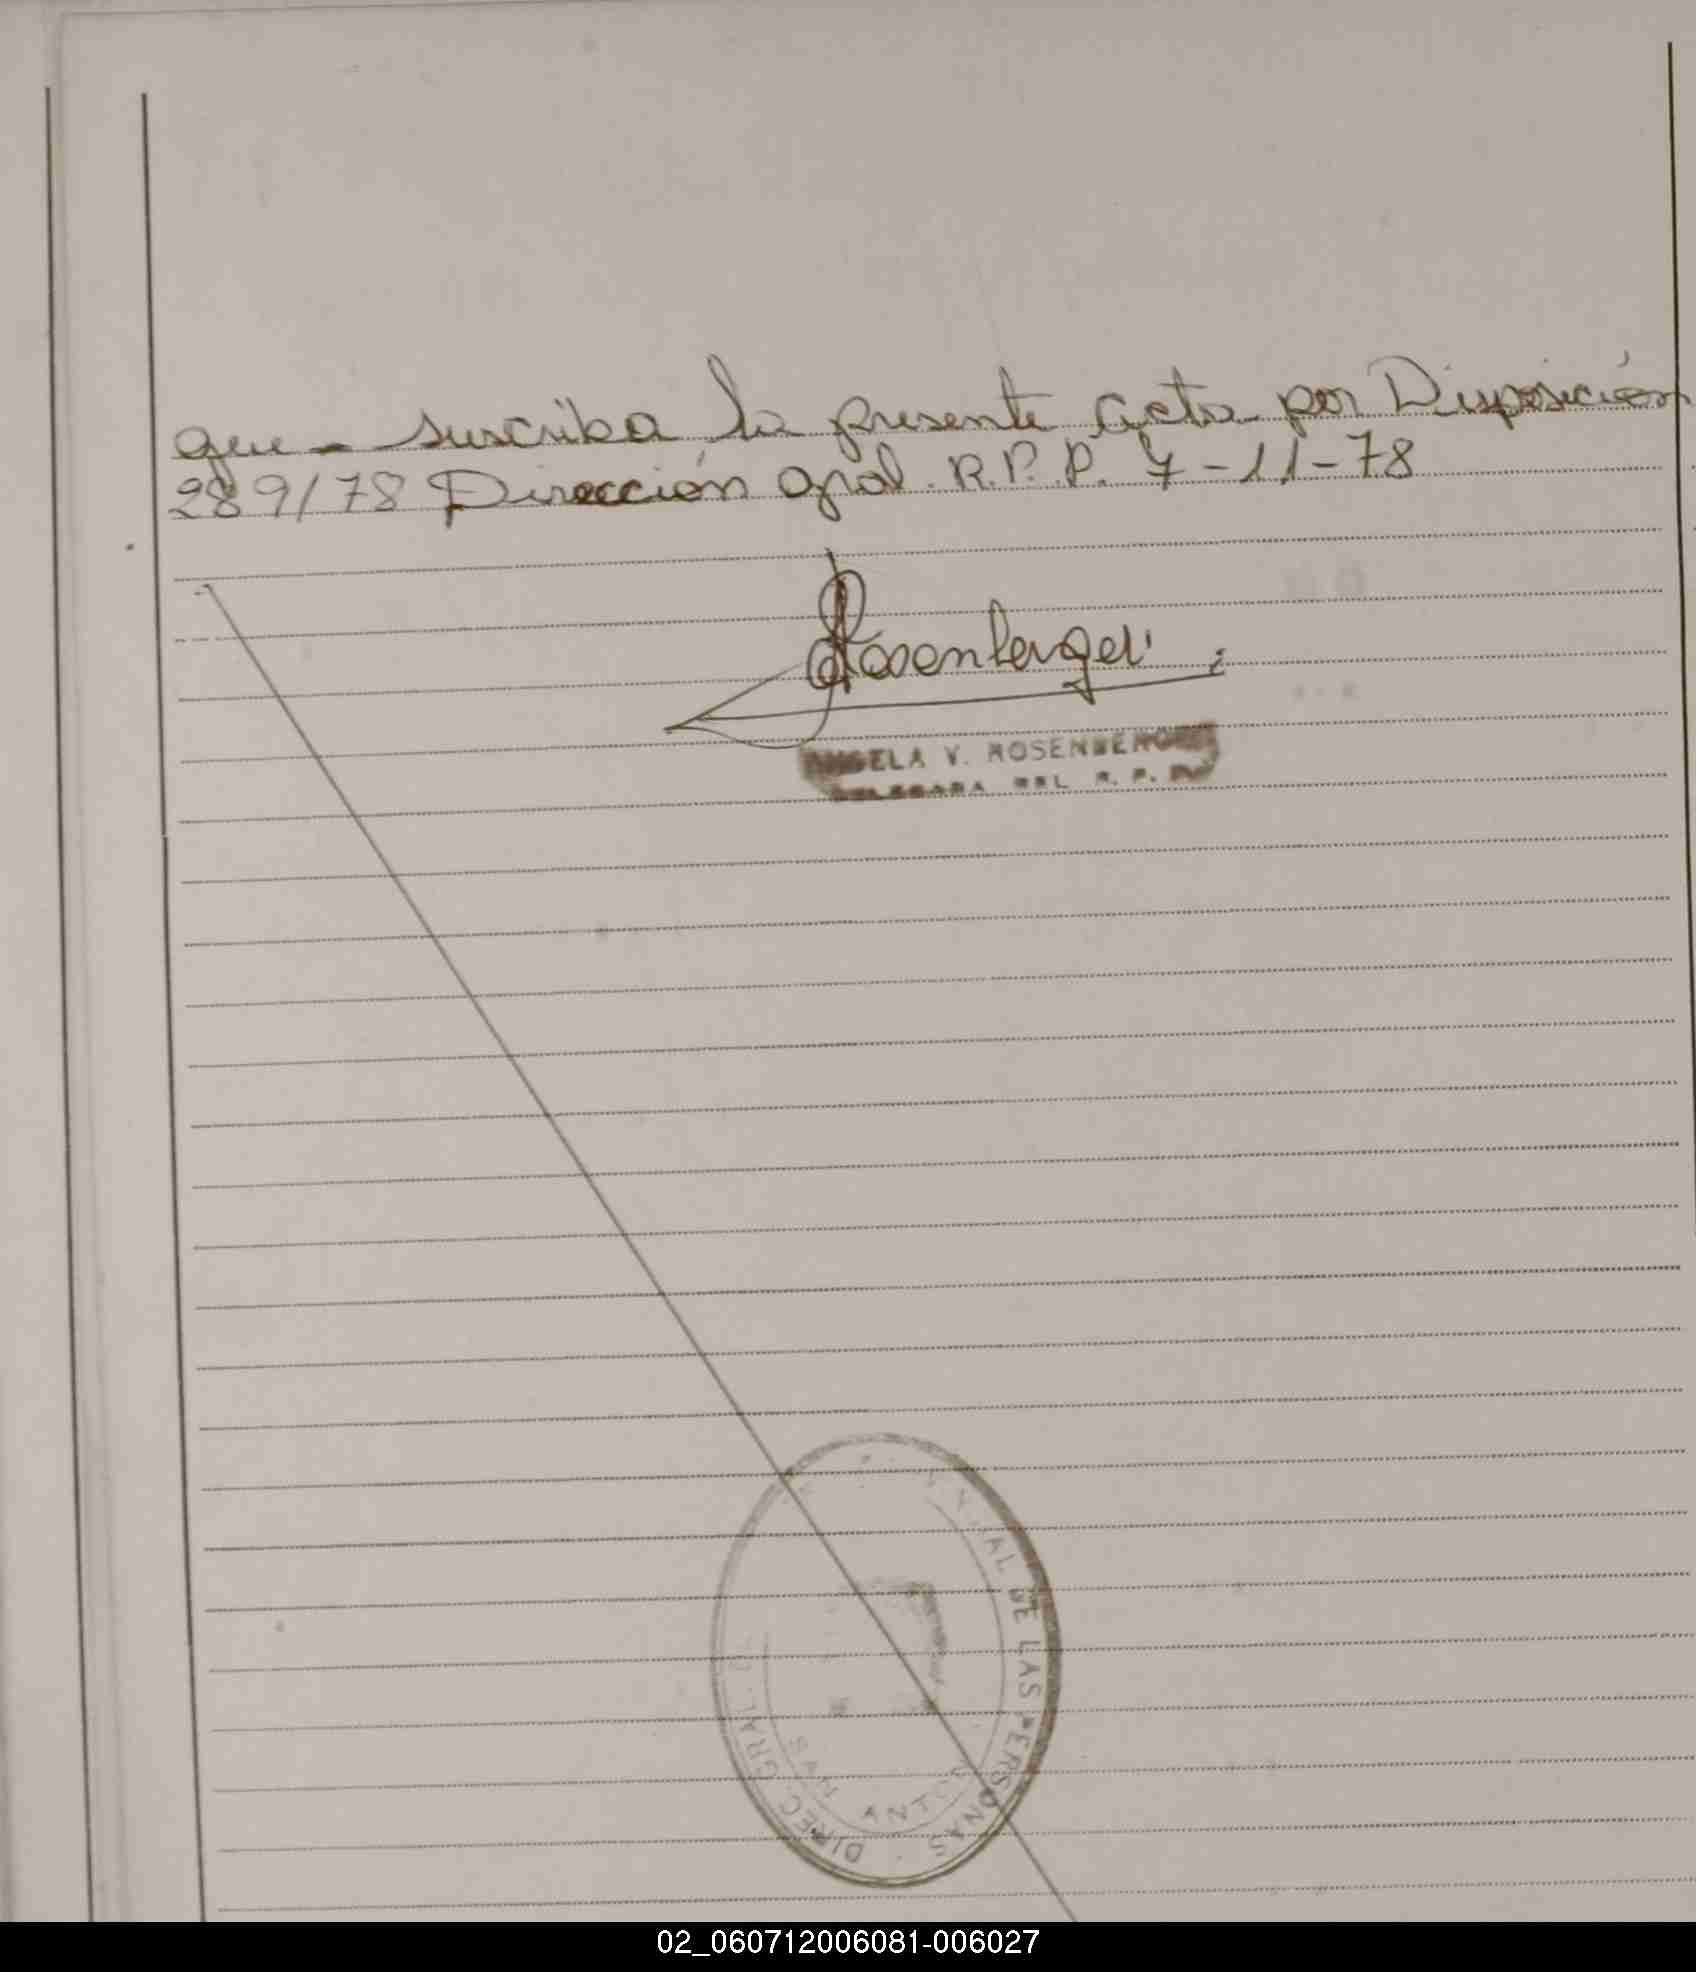 que - suscriba la presente acta por Disposición
289/78 Dirección Gral. R.P.P. 7-11-78
Rosenberger
ANGELA V. ROSENBERGER
DELEGADA DEL R. P. P.
DIREC. GRAL. DE LAS PERSONAS
SAN ANTO
02_060712006081-006027